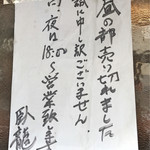 昼の部売り切れました
誠に申し訳ございません。
尚、夜は18:00〜営業致します
臥龍